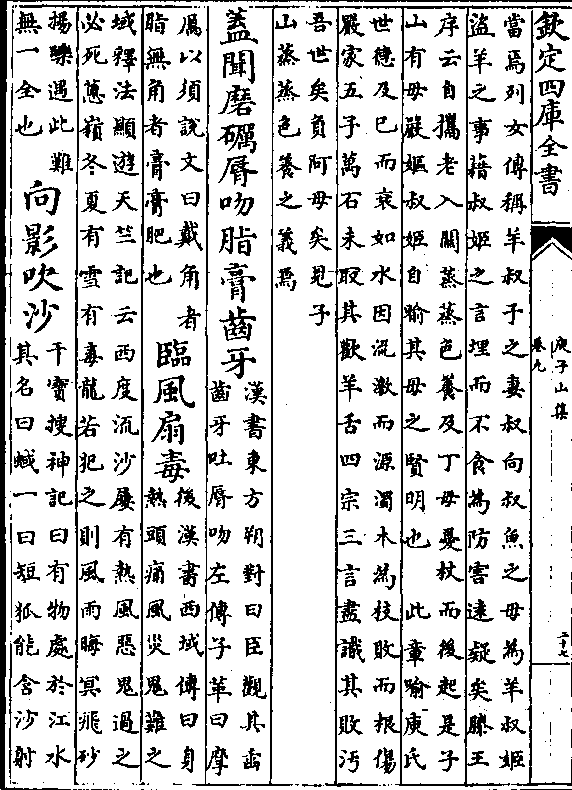 欽定四庫全書
庾子山集
卷九
二十七
當焉列女傳稱羊叔子之妻叔向叔魚之母為羊叔姬
盜羊之事藉叔姬之言埋而不食為防害逺疑矣滕王
序云自攜老入關蒸蒸色養及丁母憂杖而後起是子
山有母嚴嫗叔姬自喻其母之賢明也 此章喻庾氏
世徳及巳而衰如水因流激而源濁木為枝敗而根傷
嚴家五子萬石未取其歡羊舌四宗三言盡識其敗汚
吾世矣負阿母矣見子
山蒸蒸色養之義焉
蓋聞磨礪唇吻脂膏齒牙
漢書東方朔對曰臣觀其臿
齒牙吐唇吻左傳子革曰摩
厲以須說文曰戴角者
脂無角者膏膏肥也
臨風扇毒
後漢書西域傳曰身
熱頭痛風災鬼難之
域釋法顯遊天竺記云西度流沙屢有熱風惡鬼過之
必死蔥嶺冬夏有雪有毒龍若犯之則風雨晦冥飛砂
揚礫遇此難
無一全也
向影吹沙
干寶搜神記曰有物處於江水
其名曰蜮一曰短狐能含沙射